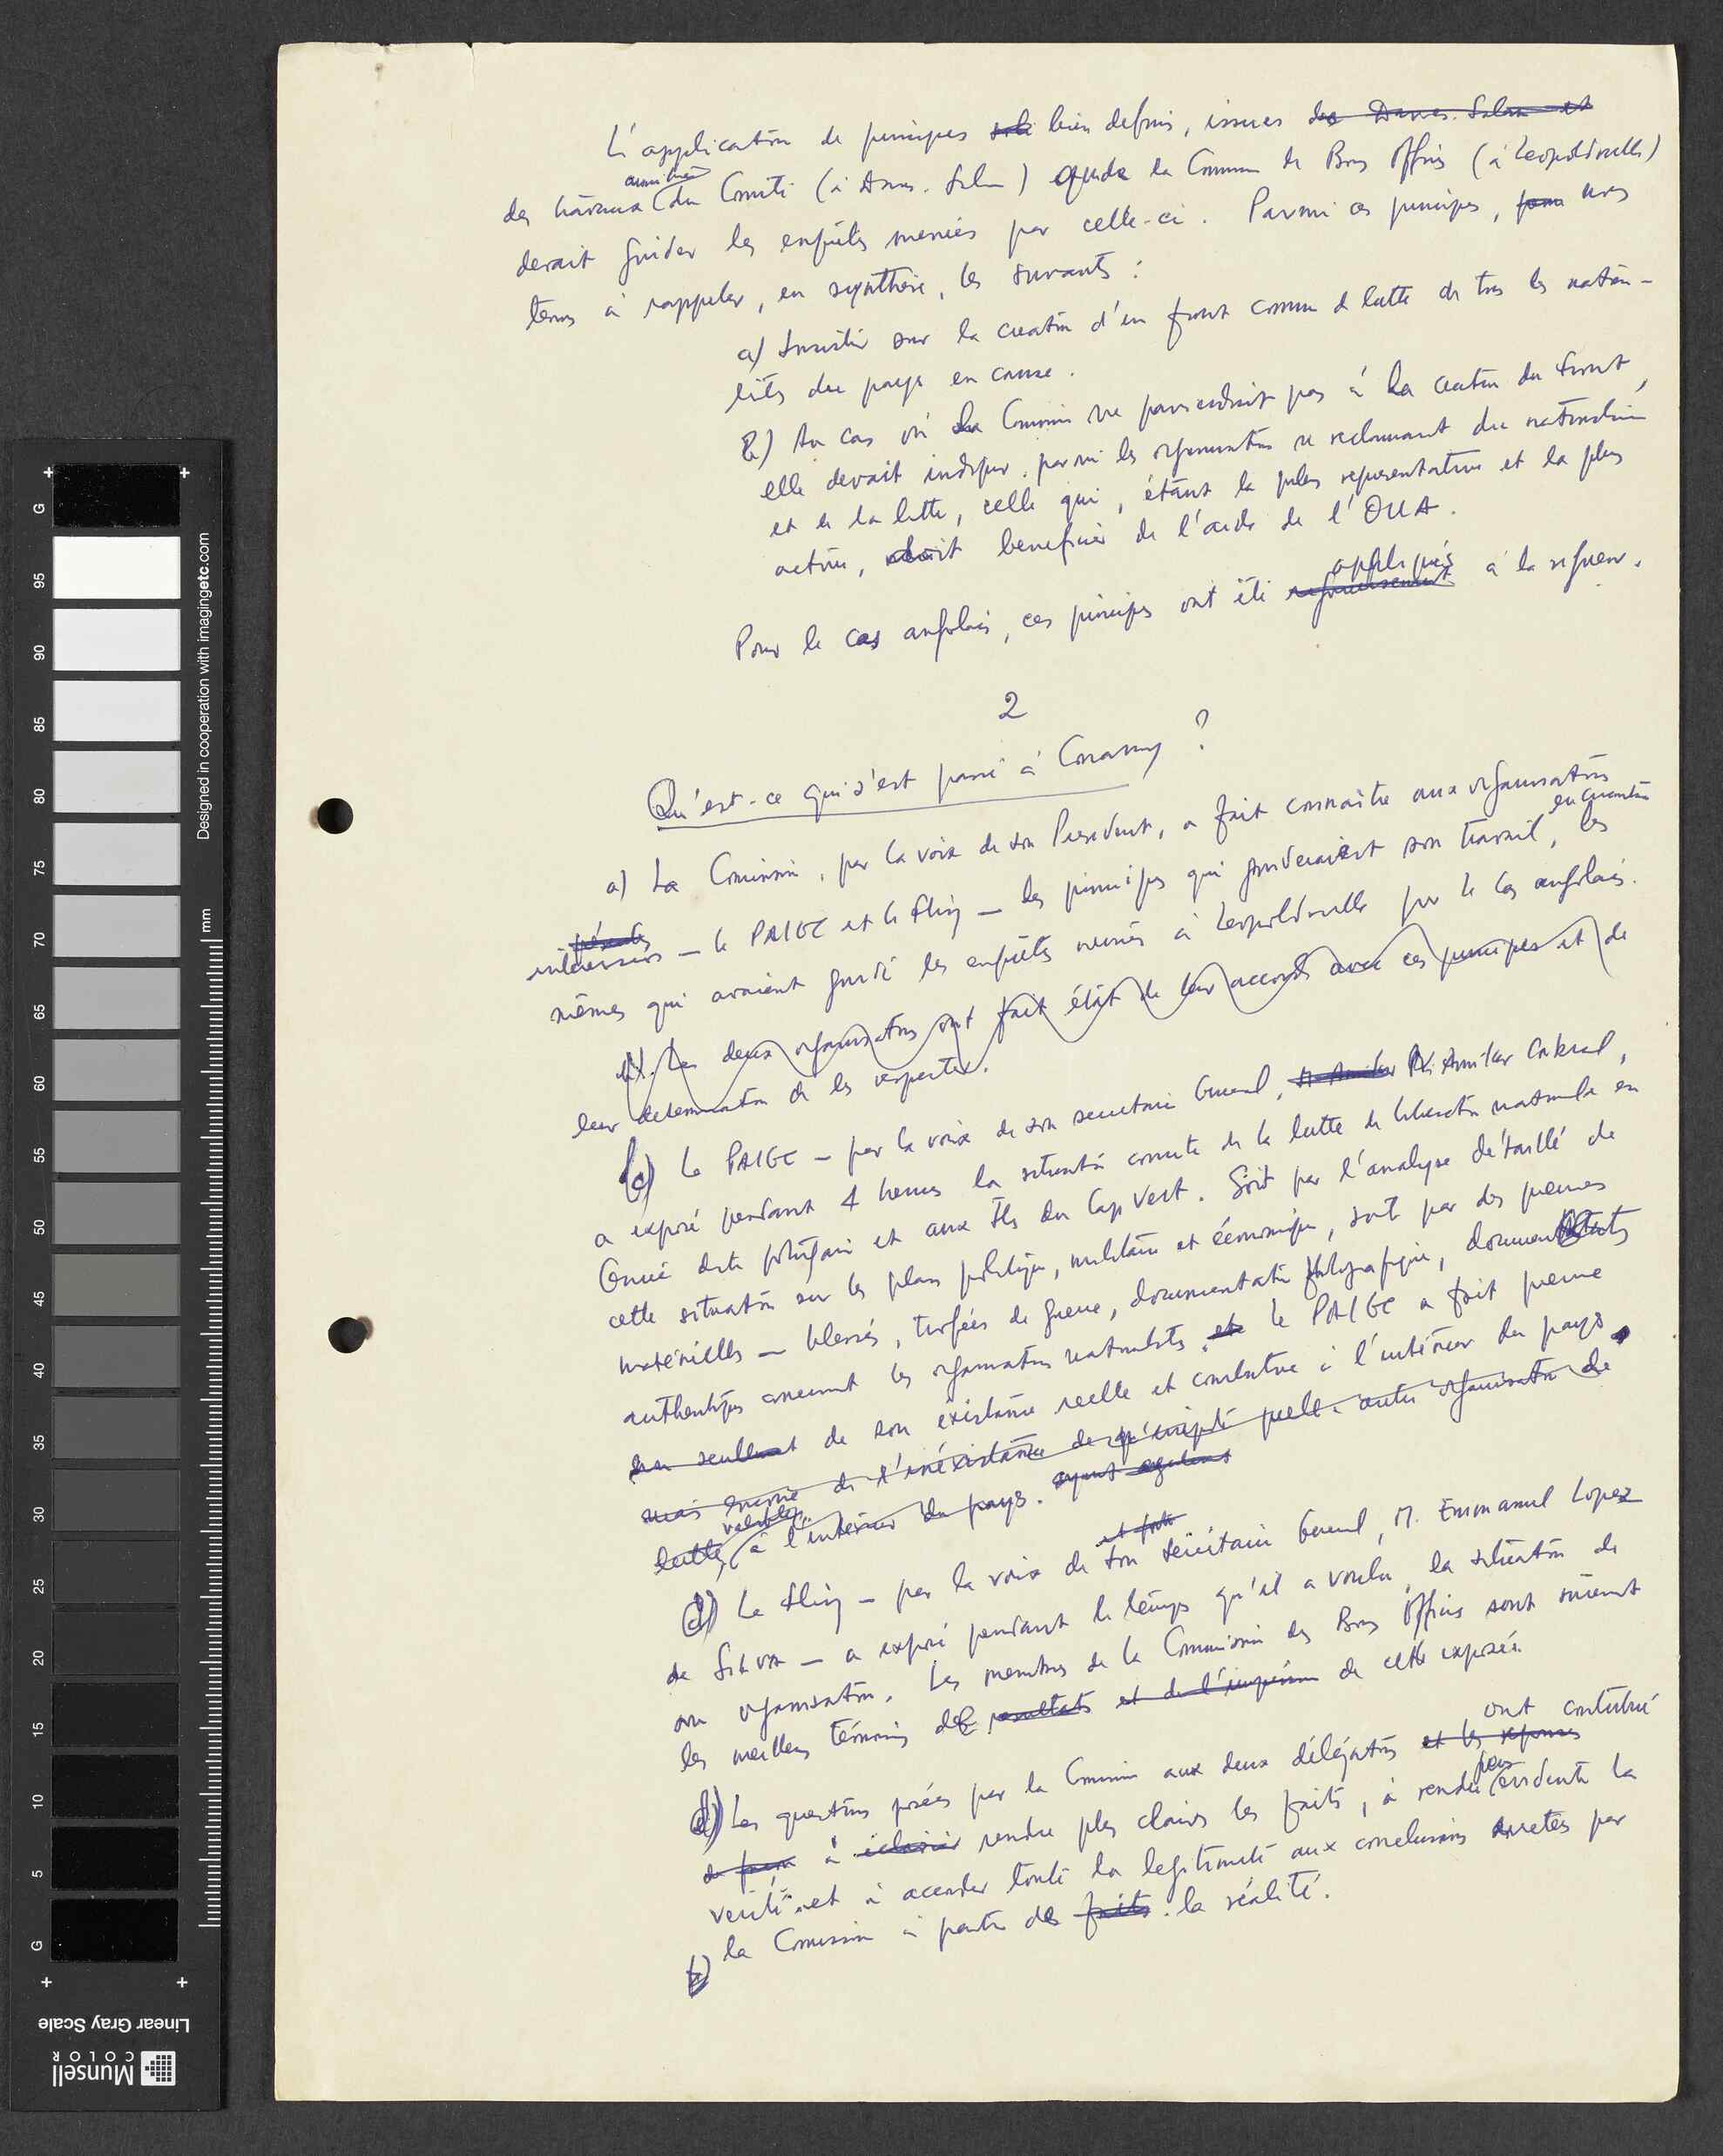 L'application de principes bien definis, issues des Dares-Salam et
des travaux du Comité (à Dares-Salam) que de la Commission de Bons Offices (à Leopoldville)
devait guider les enquêtes menées par celle-ci. Parmi ces principes, nous
tenons à rappeler, en synthèse, les suivants :
a) Insister sur la creation d'un front commun de lutte de tous les nationa-
listes du pays en cause.
b) Au cas où la Commission ne parviendrait pas à la creation du front,
elle devait indiquer parmi les organisations se reclamant du nationalisme
et de la lutte, celle qui, étant la plus representative et la plus
active, doit beneficier de l'aide de l'OUA.
Pour le cas angolais, ces principes ont été rigoureusement appliqués à la rigueur.
2
Qu'est-ce qui s'est passé à Conakry ?
a) La Commission, par la voix de son President, a fait connaître aux organisations
présentes en question
intéressées — le PAIGC et le Fling — les principes qui guideraient son travail, les
mêmes qui avaient guidé les enquêtes menées à Leopoldville pour le cas angolais.
b) Les deux organisations ont fait état de leur accord avec ces principes et de
leur determination de les respecter.
c) Le PAIGC — par la voix de son secretaire General, M. Amilcar Cabral,
a exposé pendant 4 heures la situation concrete de la lutte de liberation nationale en
Guinée dite portugaise et aux Iles du Cap Vert. Soit par l'analyse détaillé de
cette situation sur les plans politique, militaire et économique, soit par des preuves
matérielles — blessés, trofées de guerre, documentation photografique, documents
authentiques concernant les organisations nationalistes, le PAIGC a fait preuve
non seulement de son existance reelle et combative à l'intérieur du pays
mais encore de l'inéxistance de n'importe quelle autre organisation de
lutte, valable, à l'intérieur du pays.
d) Le Fling — par la voix de son secrétaire General, M. Emmanuel Lopez
da Silva — a exposé pendant le temps qu'il a voulu, la situation de
son organisation. Les membres de la Commission des Bons Offices sont surement
les meilleurs témoins des resultats et de l'impression de cette exposée.
d) Les questions posées par la Commission aux deux délégations et les reponses ont contribué
à éclaircir rendre plus claires les faits, à rendre plus évidente la
verité et à accorder toute la legitimité aux conclusions arretés par
la Commission à partir des faits. la réalité.